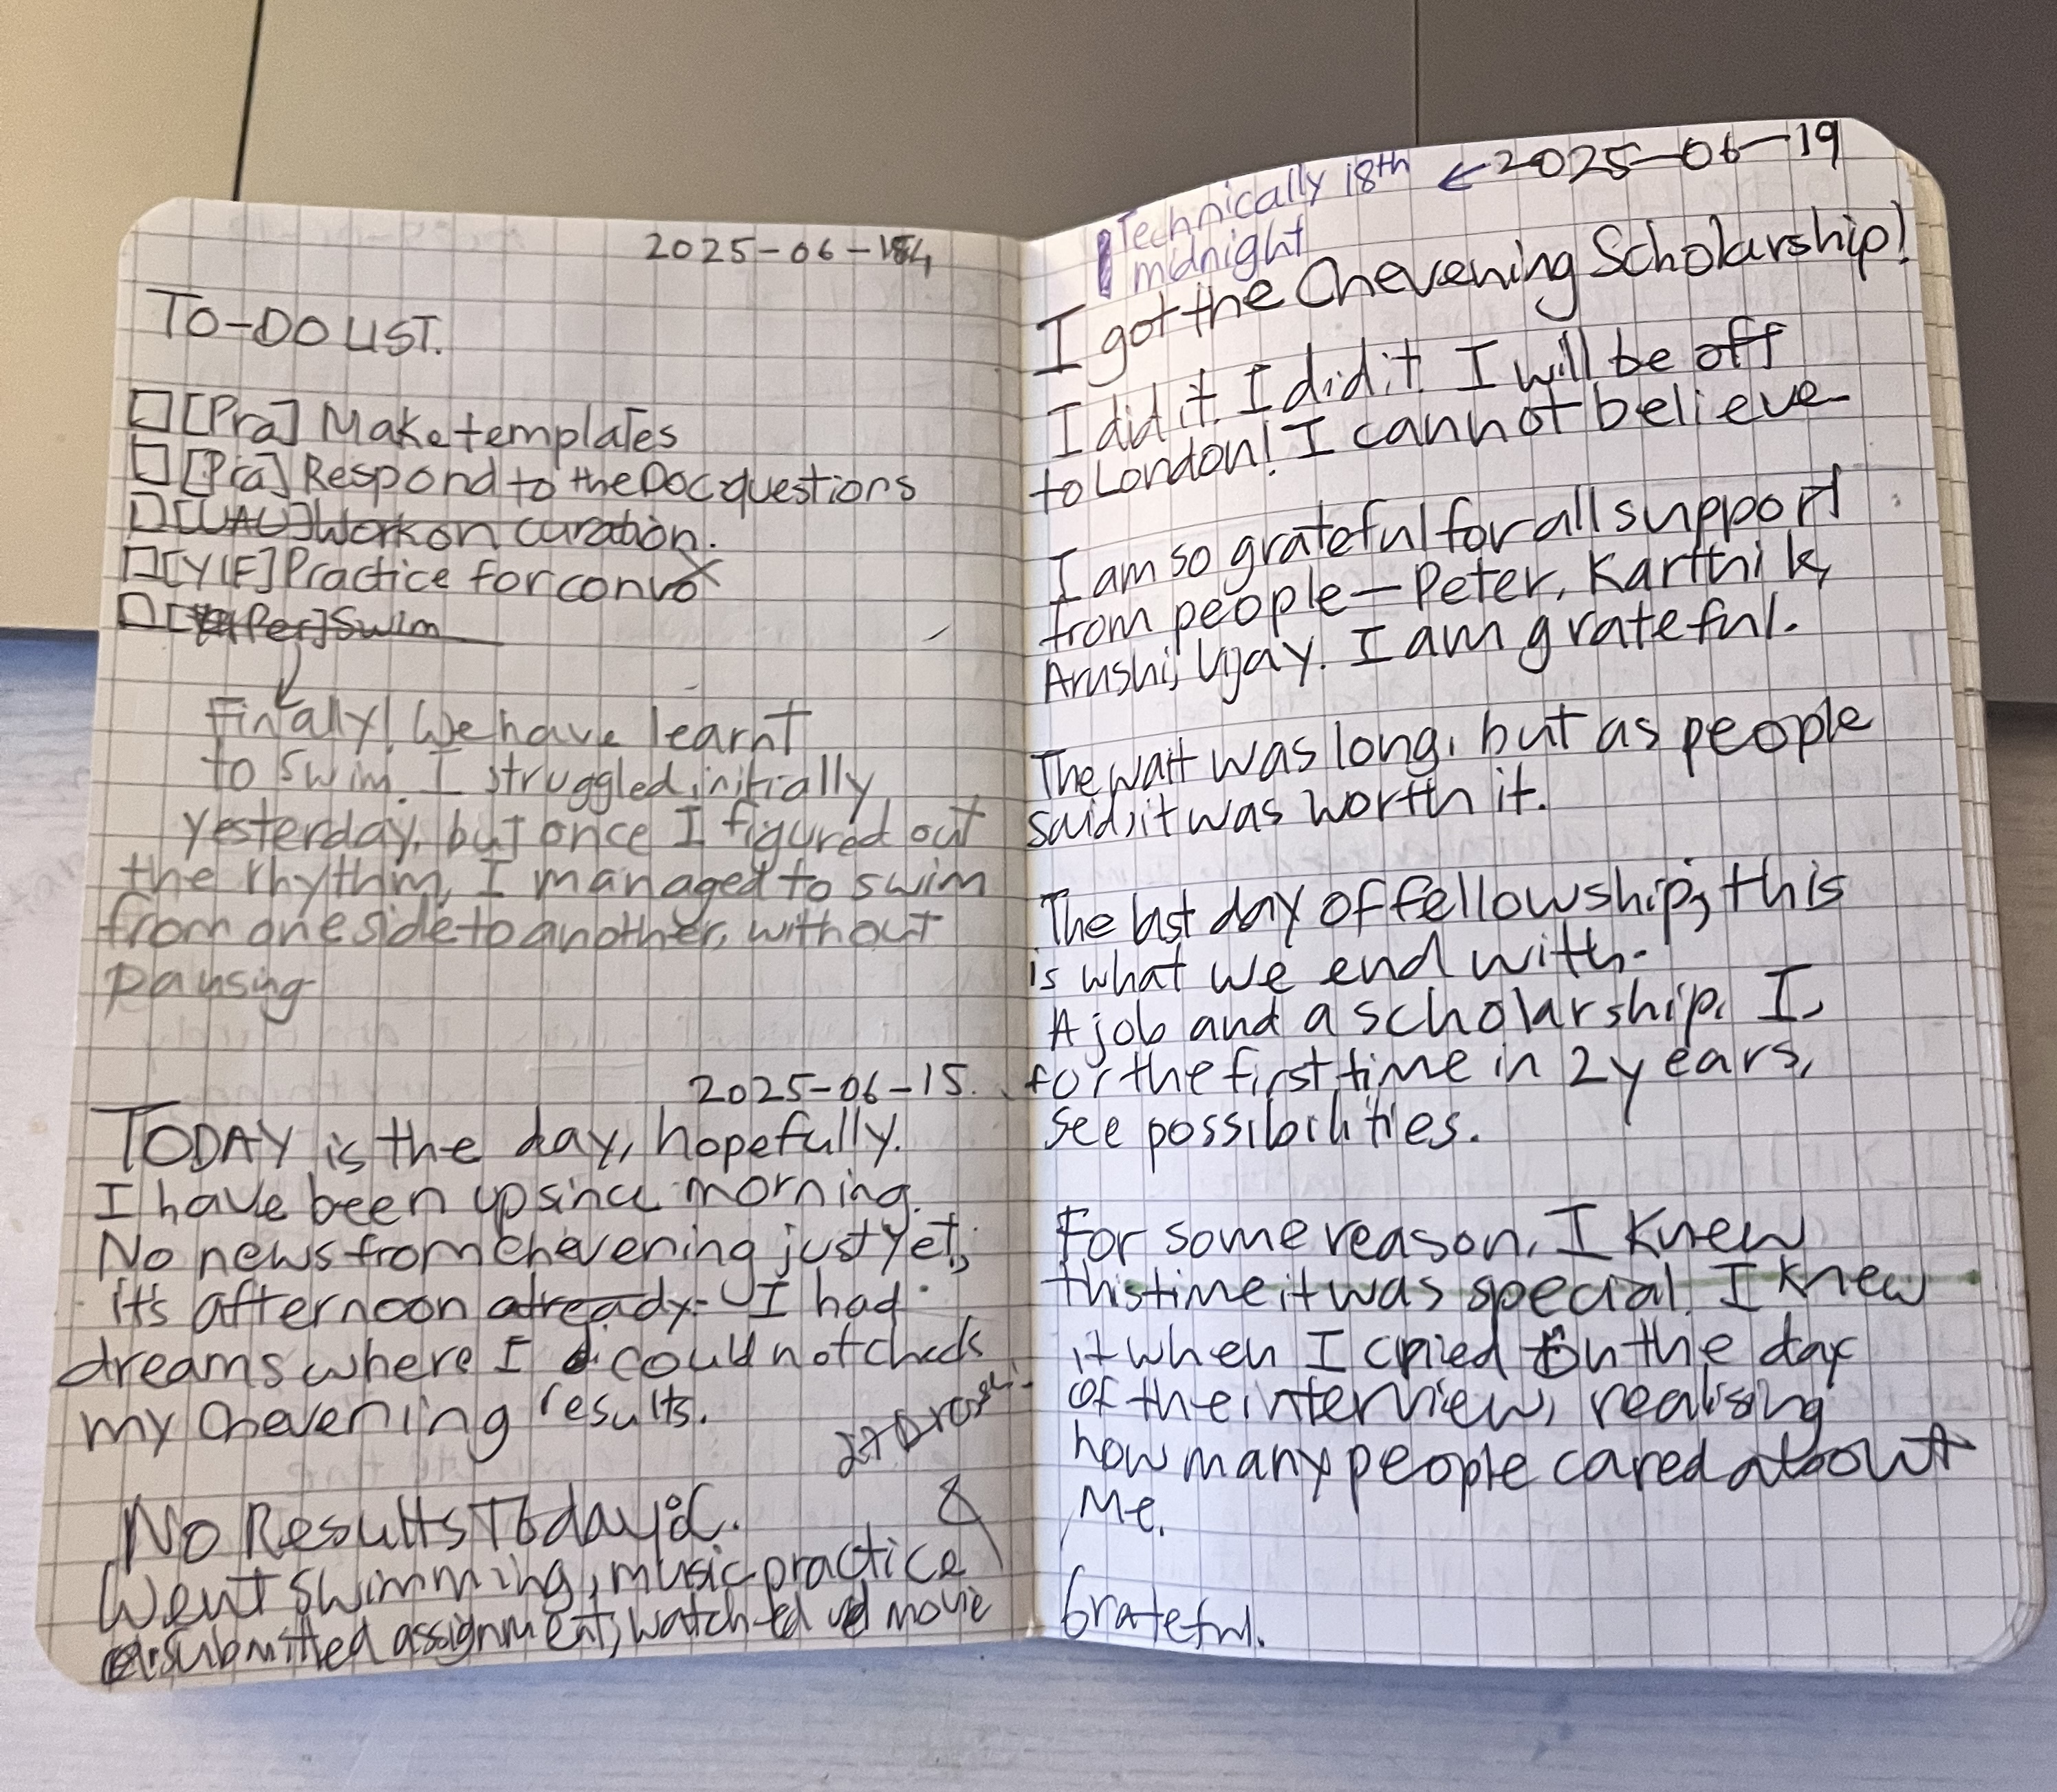 2025-06-14
TO-DO LIST.
[Pra] Make templates
[Pra] Respond to the Doc questions
[UAL] Work on curation.
[YIF] Practice for convo
[Per] Swim
Finally! We have learnt
to swim. I struggled initially
yesterday, but once I figured out
the rhythm, I managed to swim
from one side to another, without
pausing
2025-06-15.
TODAY is the day, hopefully.
I have been up since morning.
No news from Chevening just yet;
it's afternoon already. I had
dreams where I could not check
my Chevening results.
No Results Today :(.
Went swimming, music practice
submitted assignment, watched movie
&
2025-06-19
Technically 18th
midnight
I got the Chevening Scholarship!
I did it. I did it. I will be off
to London! I cannot believe
I am so grateful for all support
from people — Peter, Karthik,
Arushi, Vijay. I am grateful.
The wait was long, but as people
said, it was worth it.
The last day of fellowship, this
is what we end with.
A job and a scholarship. I,
for the first time in 2 years,
see possibilities.
For some reason, I knew
this time it was special. I knew
it when I cried on the day
of the interview, realising
how many people cared about
Me.
Grateful.